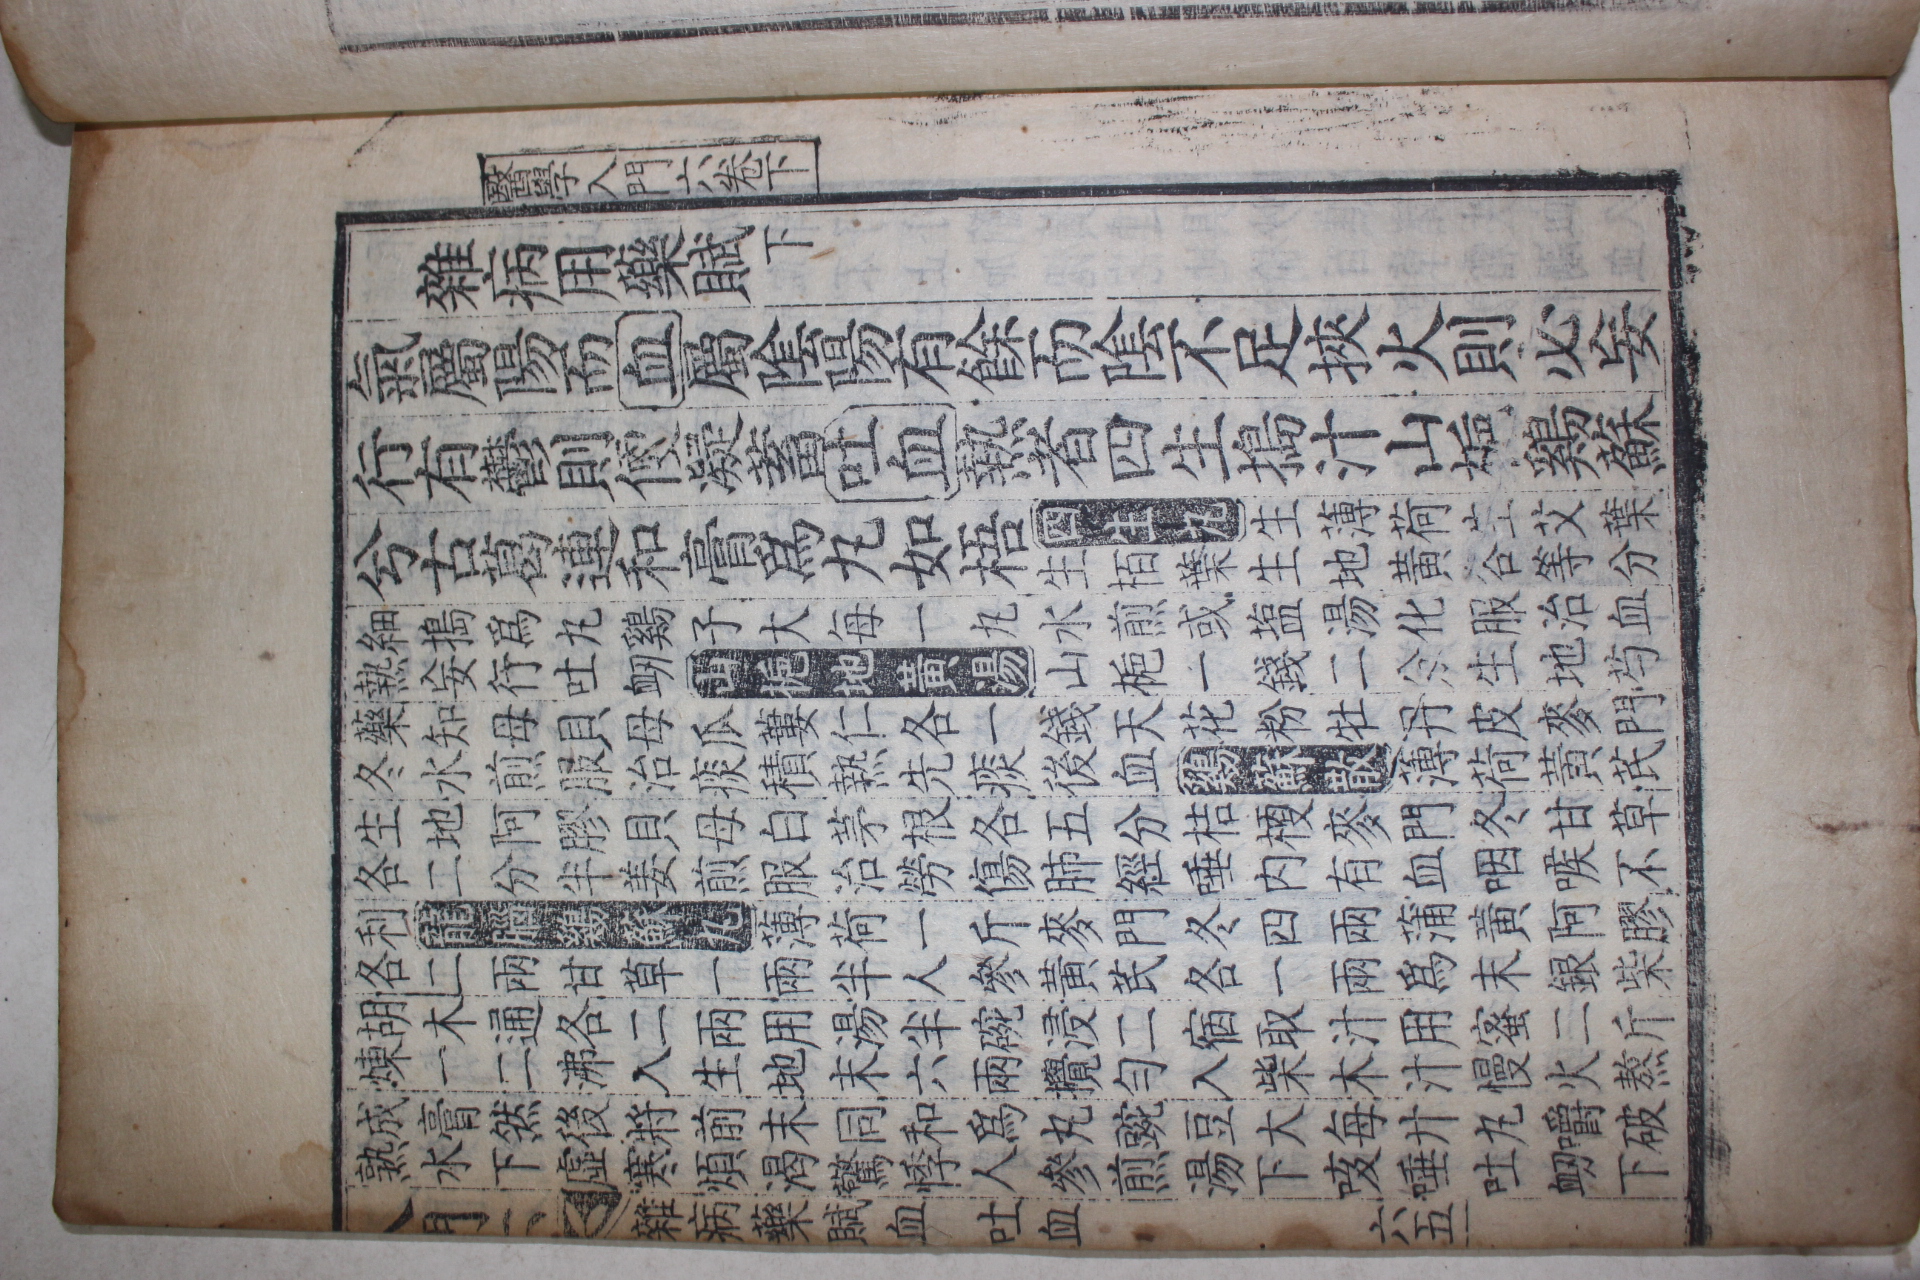 醫學入門六卷下
雜病用藥賦下
氣屬陽而血屬陰陽有餘而陰不足挾火則必妄
行有鬱則便凝蓄吐血熱者四生搗汁山梔鷄蘇
兮古葛連和膏爲丸如梧
四生丸生薄荷生艾葉
生栢葉生地黃各等分
細搗爲丸鷄子大每一丸水煎或塩湯化服治血
熱妄行吐衂山梔地黃湯山梔一錢二分生地芍
藥知母貝母瓜蔞仁各一錢天花粉牡丹皮麥門
冬水煎服治痰積熱先痰後血鷄蘇散薄荷黃芪
生地阿膠貝母白茅根各五分桔梗麥門冬甘草
各二分半姜煎服治勞傷肺經唾內有血咽喉不
利龍腦鷄蘇丸薄荷一斤麥門冬四兩蒲黃阿膠
各二兩甘草一兩半人參黃芪各一兩爲末銀柴
胡木通各二兩用湯半碗浸二宿取汁用蜜二斤
煉一二沸入生地末六兩攪勻入柴木汁慢火熬
成膏然後將前末同和爲丸豌豆大每廾丸嚼破
熟水下虛寒煩渴驚悸人參煎湯下咳唾吐衂下
入門六 雜病藥賦血 吐血 六五